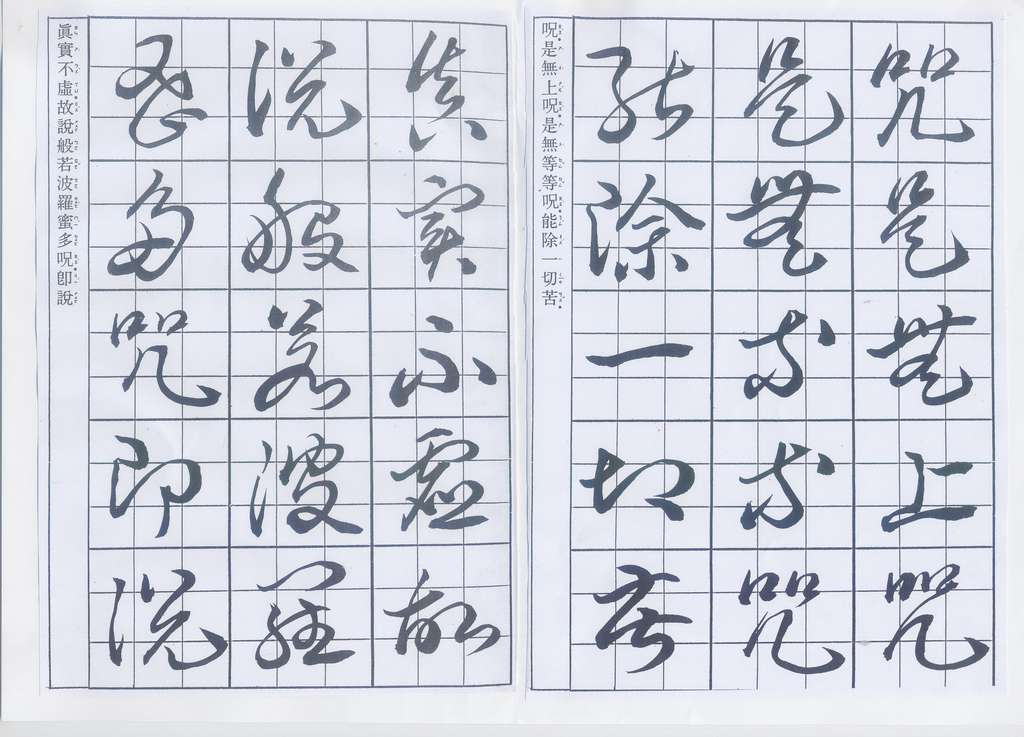 呪是無上呪
是無等等呪
能除一切苦
呪是無上呪是無等等呪能除一切苦
眞実不虛故
說般若波羅
蜜多呪即說
眞實不虛故說般若波羅蜜多呪卽說